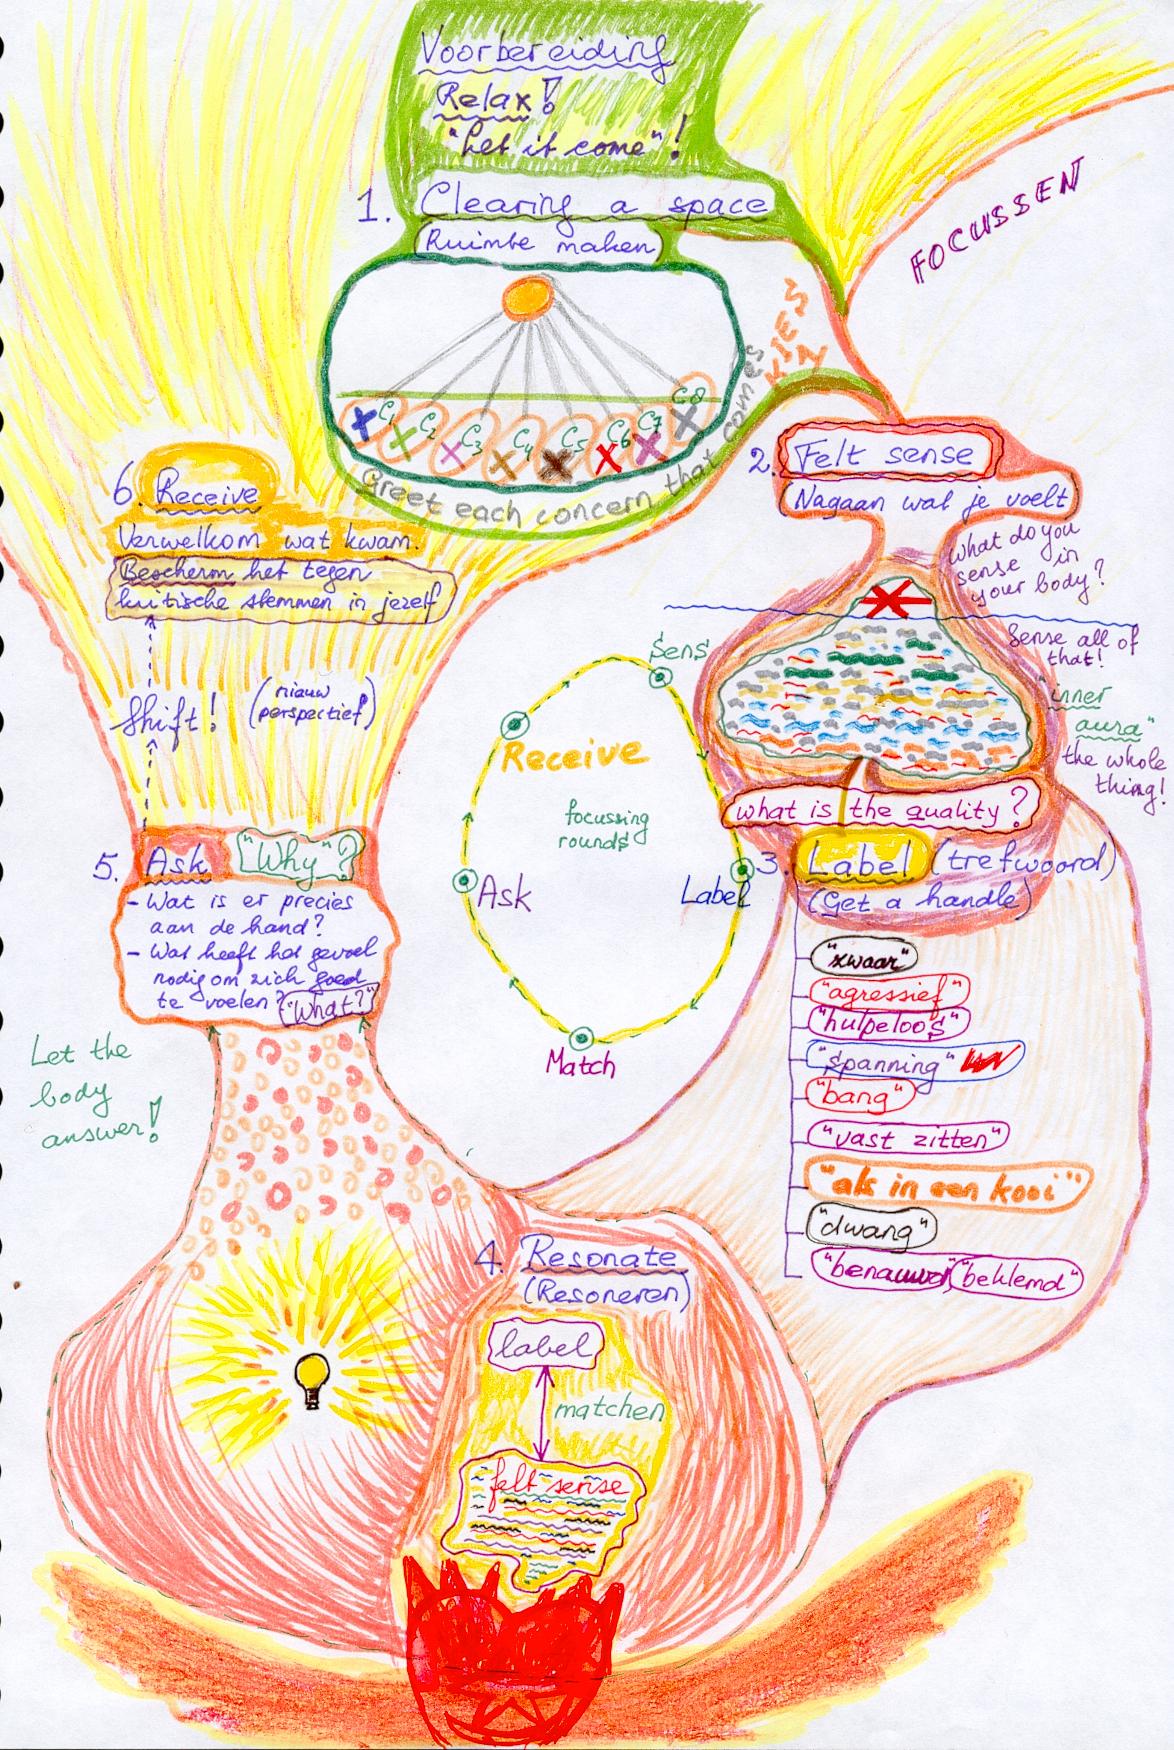 Voorbereiding
Relax!
"Let it come"!
1. Clearing a space
(Ruimte maken)
C1 C2 C3 C4 C5 C6 C7 C8
Greet each concern that comes
KIES 1
FOCUSSEN
2. Felt sense
(Nagaan wat je voelt)
What do you
sense in
your body?
Sense all of
that!
"inner
aura"
the whole
thing!
what is the quality?
3. Label (trefwoord)
(Get a handle)
"zwaar"
"agressief"
"hulpeloos"
"spanning"
"bang"
"vast zitten"
"als in een kooi"
"dwang"
"benauwd" "beklemd"
4. Resonate
(Resoneren)
label
matchen
felt sense
5. Ask "Why"?
- Wat is er precies
aan de hand?
- Wat heeft het gevoel
nodig om zich goed
te voelen? "What?"
Let the
body
answer!
Shift! (nieuw
perspectief)
6. Receive
Verwelkom wat kwam.
Bescherm het tegen
kritische stemmen in jezelf
Sens
Receive
focussing
rounds
Ask
Label
Match